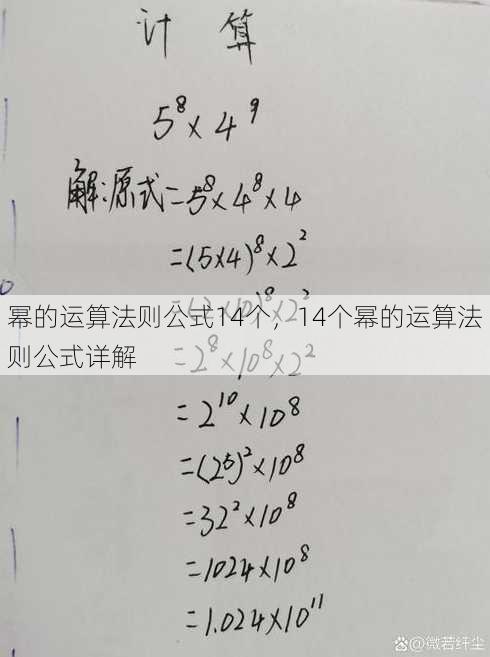 计 算
5⁸×4⁹
解:原式=5⁸×4⁸×4
=(5×4)⁸×2²
=(2×10)⁸×2²
幂的运算法则公式14个，14个幂的运算法
则公式详解
=2⁸×10⁸×2²
=2¹⁰×10⁸
=(2⁵)²×10⁸
=32²×10⁸
=1024×10⁸
=1.024×10¹¹
@微若纤尘